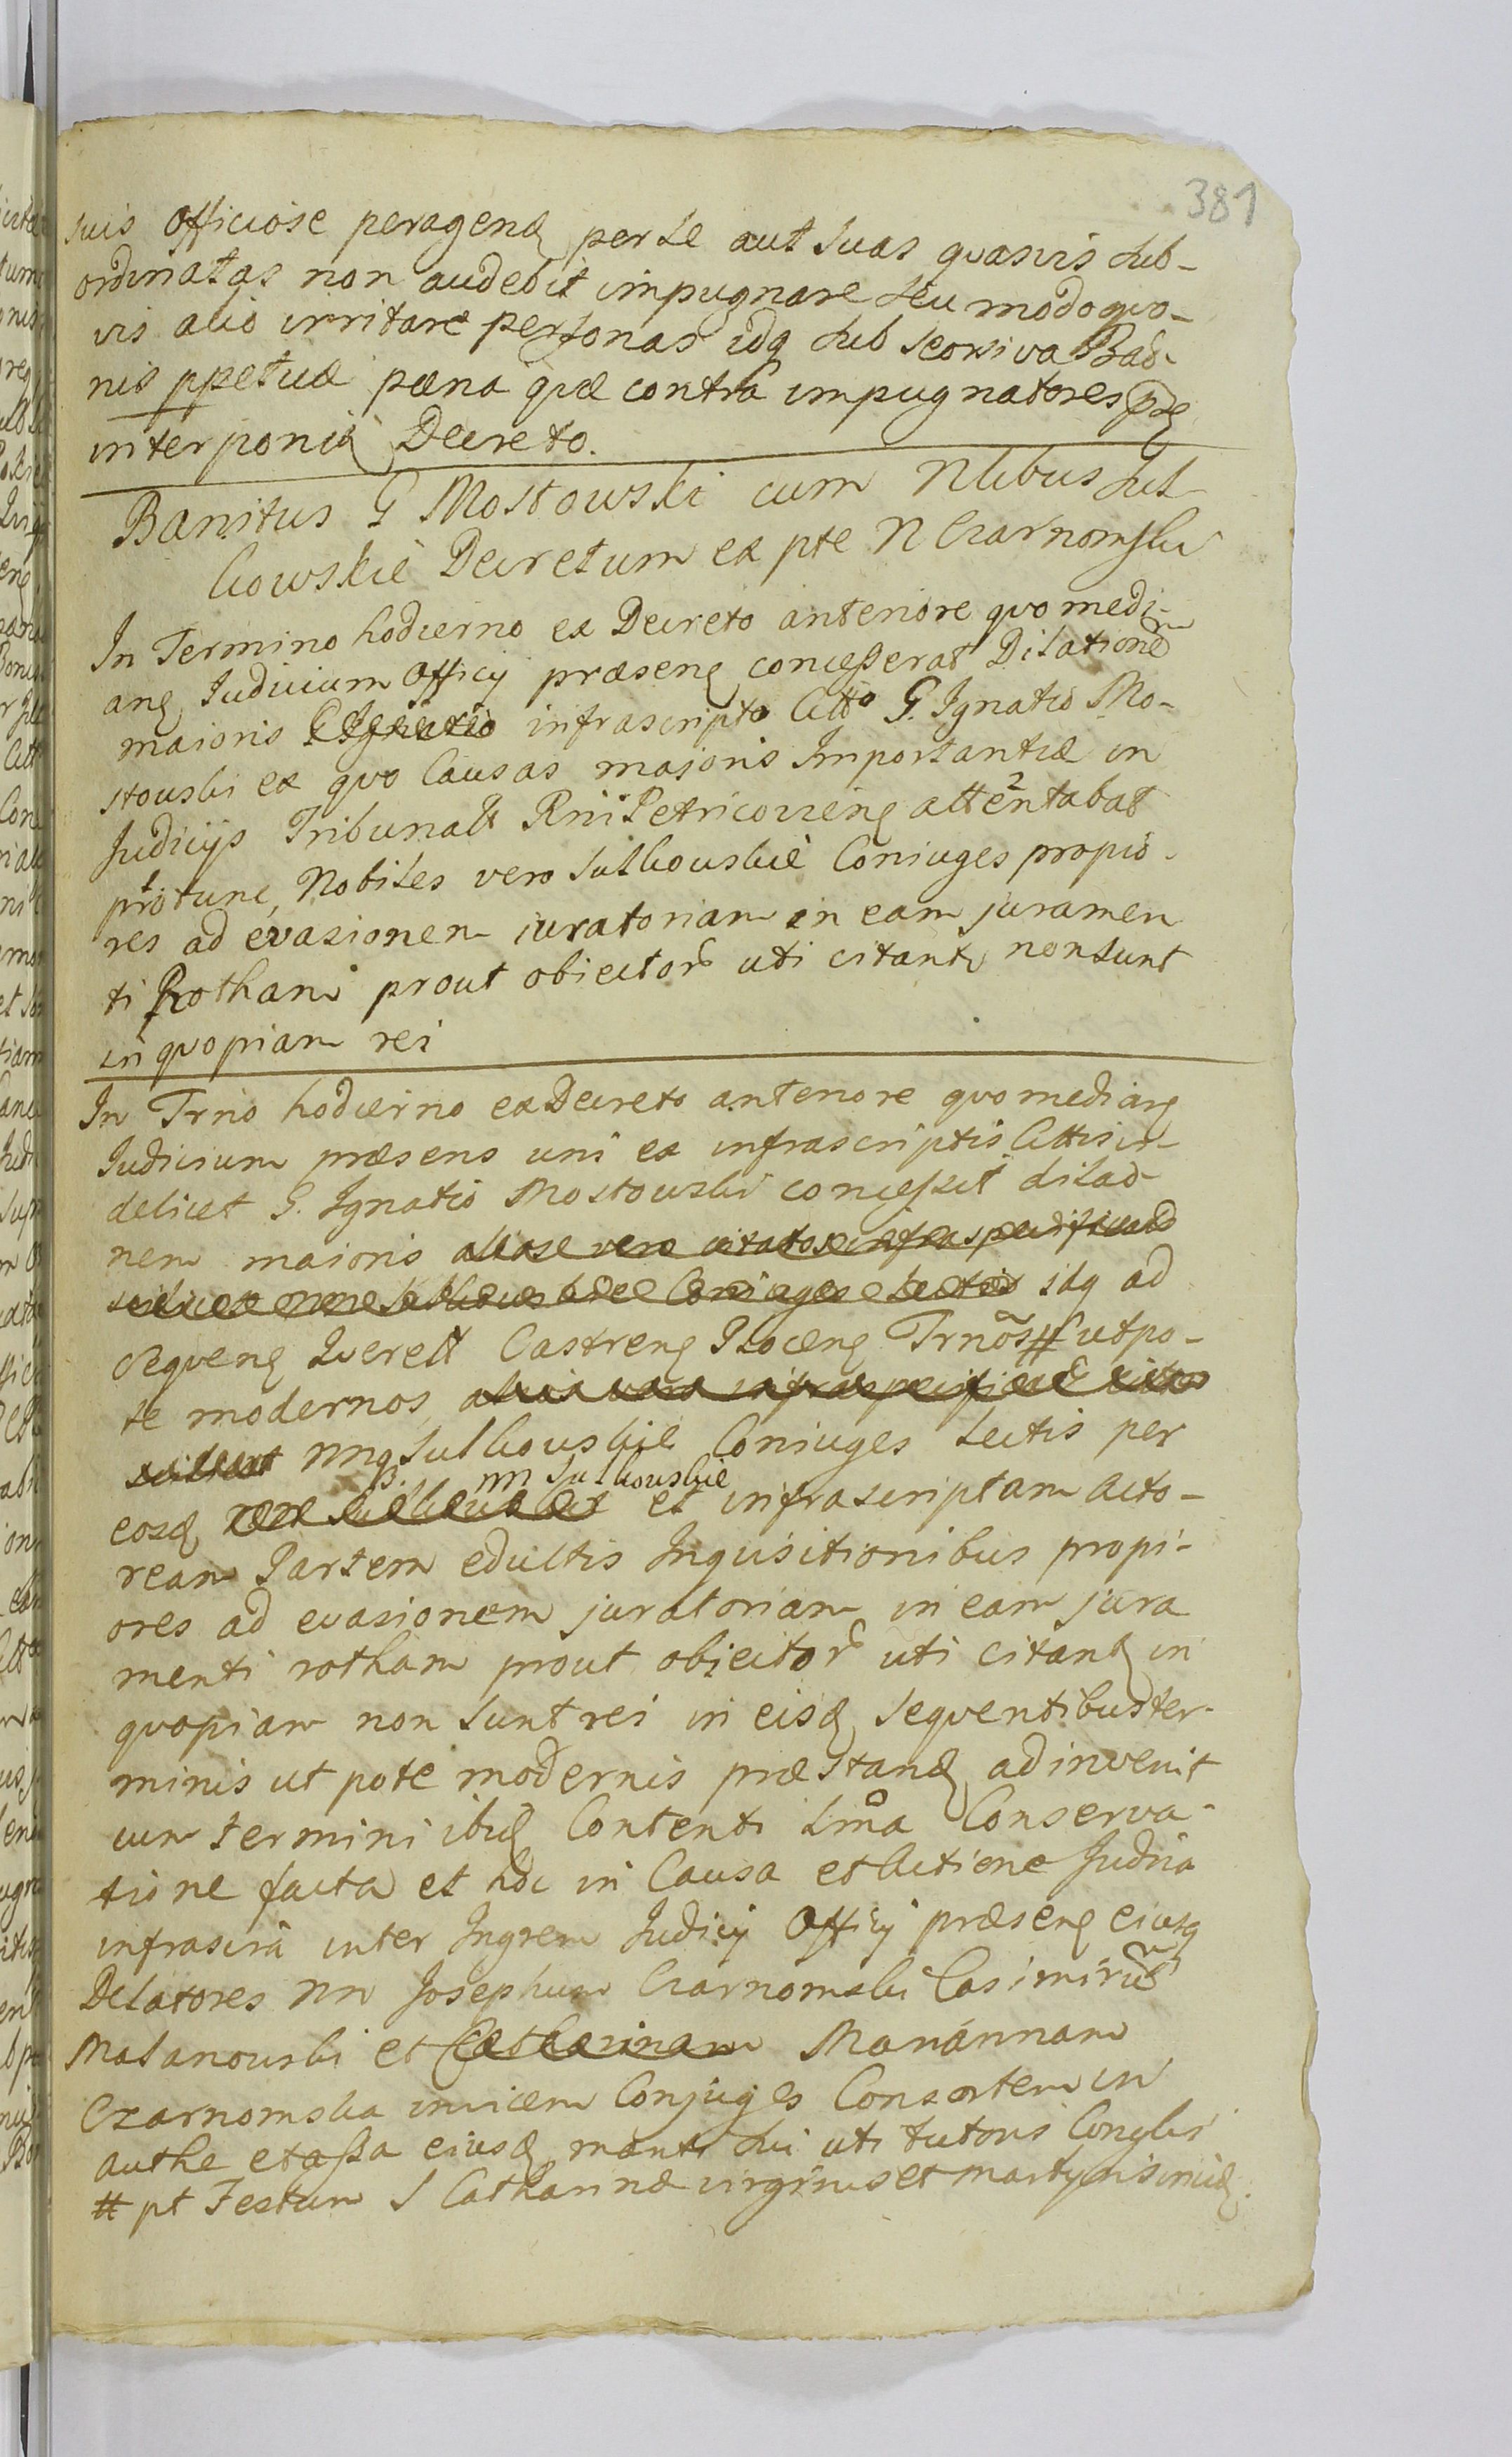 381
suis Officiose peragend per se aut suas quasvis sub-
ordinatas non audebit impugnare seu modo quo-
vis alio irritare personas idq sub seorsiva Ban-
nis ppetuæ pæna quæ contra impugnatores pñ
interponit Decreto.
Banitus G Mostowski cum Nlibus Sul-
kowskie Decretum ex pte N Czarnomski
In Termino hodierno ex Decreto anteriore quo medi-
an Judicium Officij præsens concesserat Dilationē
maioris infrascripto Citto G. Ignatio Mo-
stouski ex quo Causas majoris Importantiæ in
Judicijs Tribunalt Rni Petricovien attentabat
pro tunc, Nobiles vero Sulkouskie Coniuges propio-
res ad evasionem juratoriam in eam juramen
ti Rotham prout obiector uti citant non sunt
in quopiam rei
In Trno hodierno ex Decreto anteriore quo median
Judicium præsens uni ex infrascriptis Cittis vi-
delicet G. Ignatio Mostouski concessit dilao-
nem maioris aliose vero citatos infraspecificand
scilicet Coniuges Lectis idq ad
sequen Querell Castren Plocen Trnos # utpo-
te modernos,
scilicet NN Sulkouskie Coniuges Lectis per
NN Sulkouskie
eosd et infrascriptam acto-
ream Partem eductis Inquisitionibus propi-
ores ad evasionem juratoriam in eam jura
menti rotham prout obiector uti citant in
quopiam non sunt rei in eisd sequentibus ter-
minis ut pote modernis præstand adinvenit
cum termini ibid Contenti Lma Conserva-
tione facta et hoc in Causa et Actione Judria
infrascra inter Ingrem Judicij Officij præsen eiusq
Delatores NN Josephum Czarnomski Casimirum
Malanouski et Catharinam Mariannam
Czarnomska invicem Conjuges Consortem in
authe et assa eiusd mariti sui uti tutoris Conglis
# pt Festum S Catharinæ virginis et martyris incid.